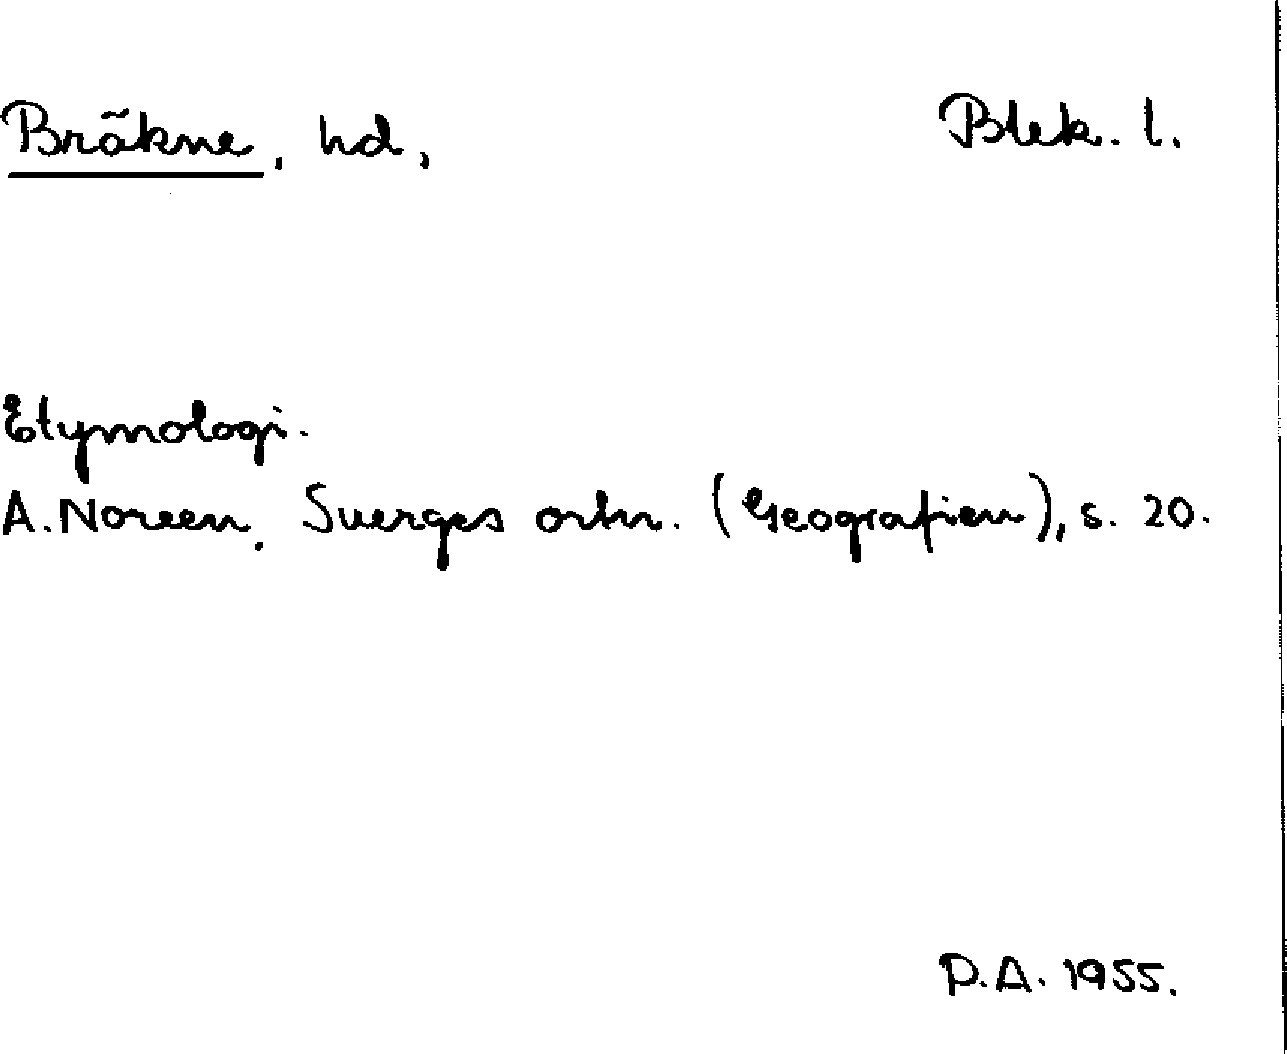 Bräkne, hd, Blek. l.
Etymologi.
A. Noreen, Sverges ortn. (Geografien), s. 20.
P.A. 1955.